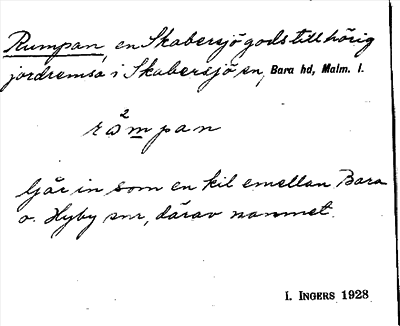 Rumpan, en Skabersjö gods tillhörig
jordremsa i Skabersjö sn, Bara hd, Malm. l.
2
råmpan
Går in som en kil emellan Bara
o. Hyby snr, därav namnet.
I. INGERS 1928